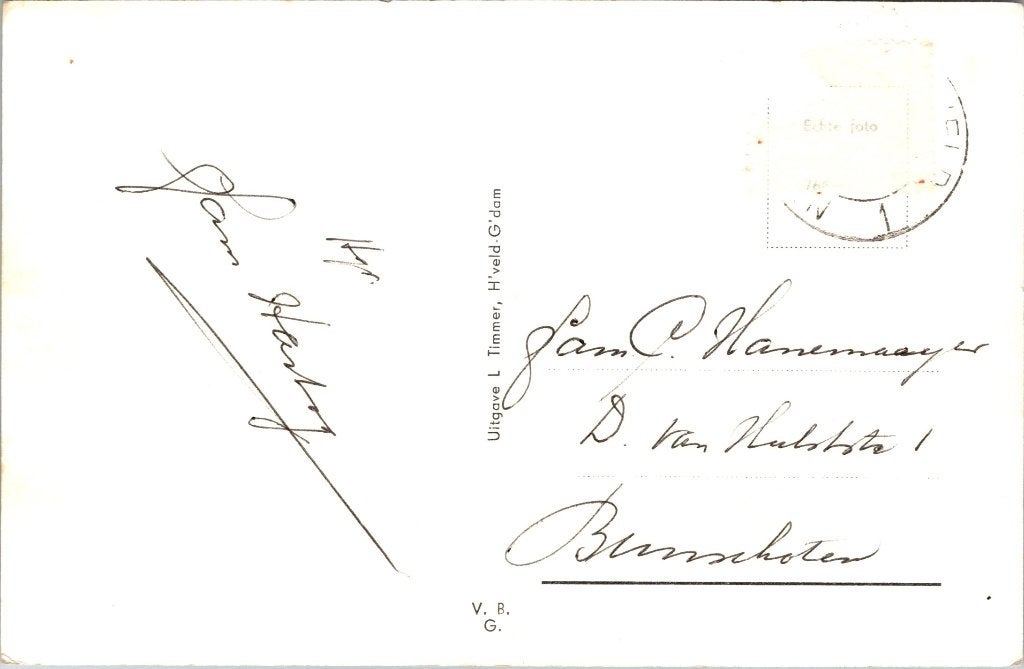 Fam
Uitgave L Timmer, H'veld-G'dam
Echte foto
Fam C. Hanemaayer
D. van Hulststr 1
Bunschoten
V. B.
G.